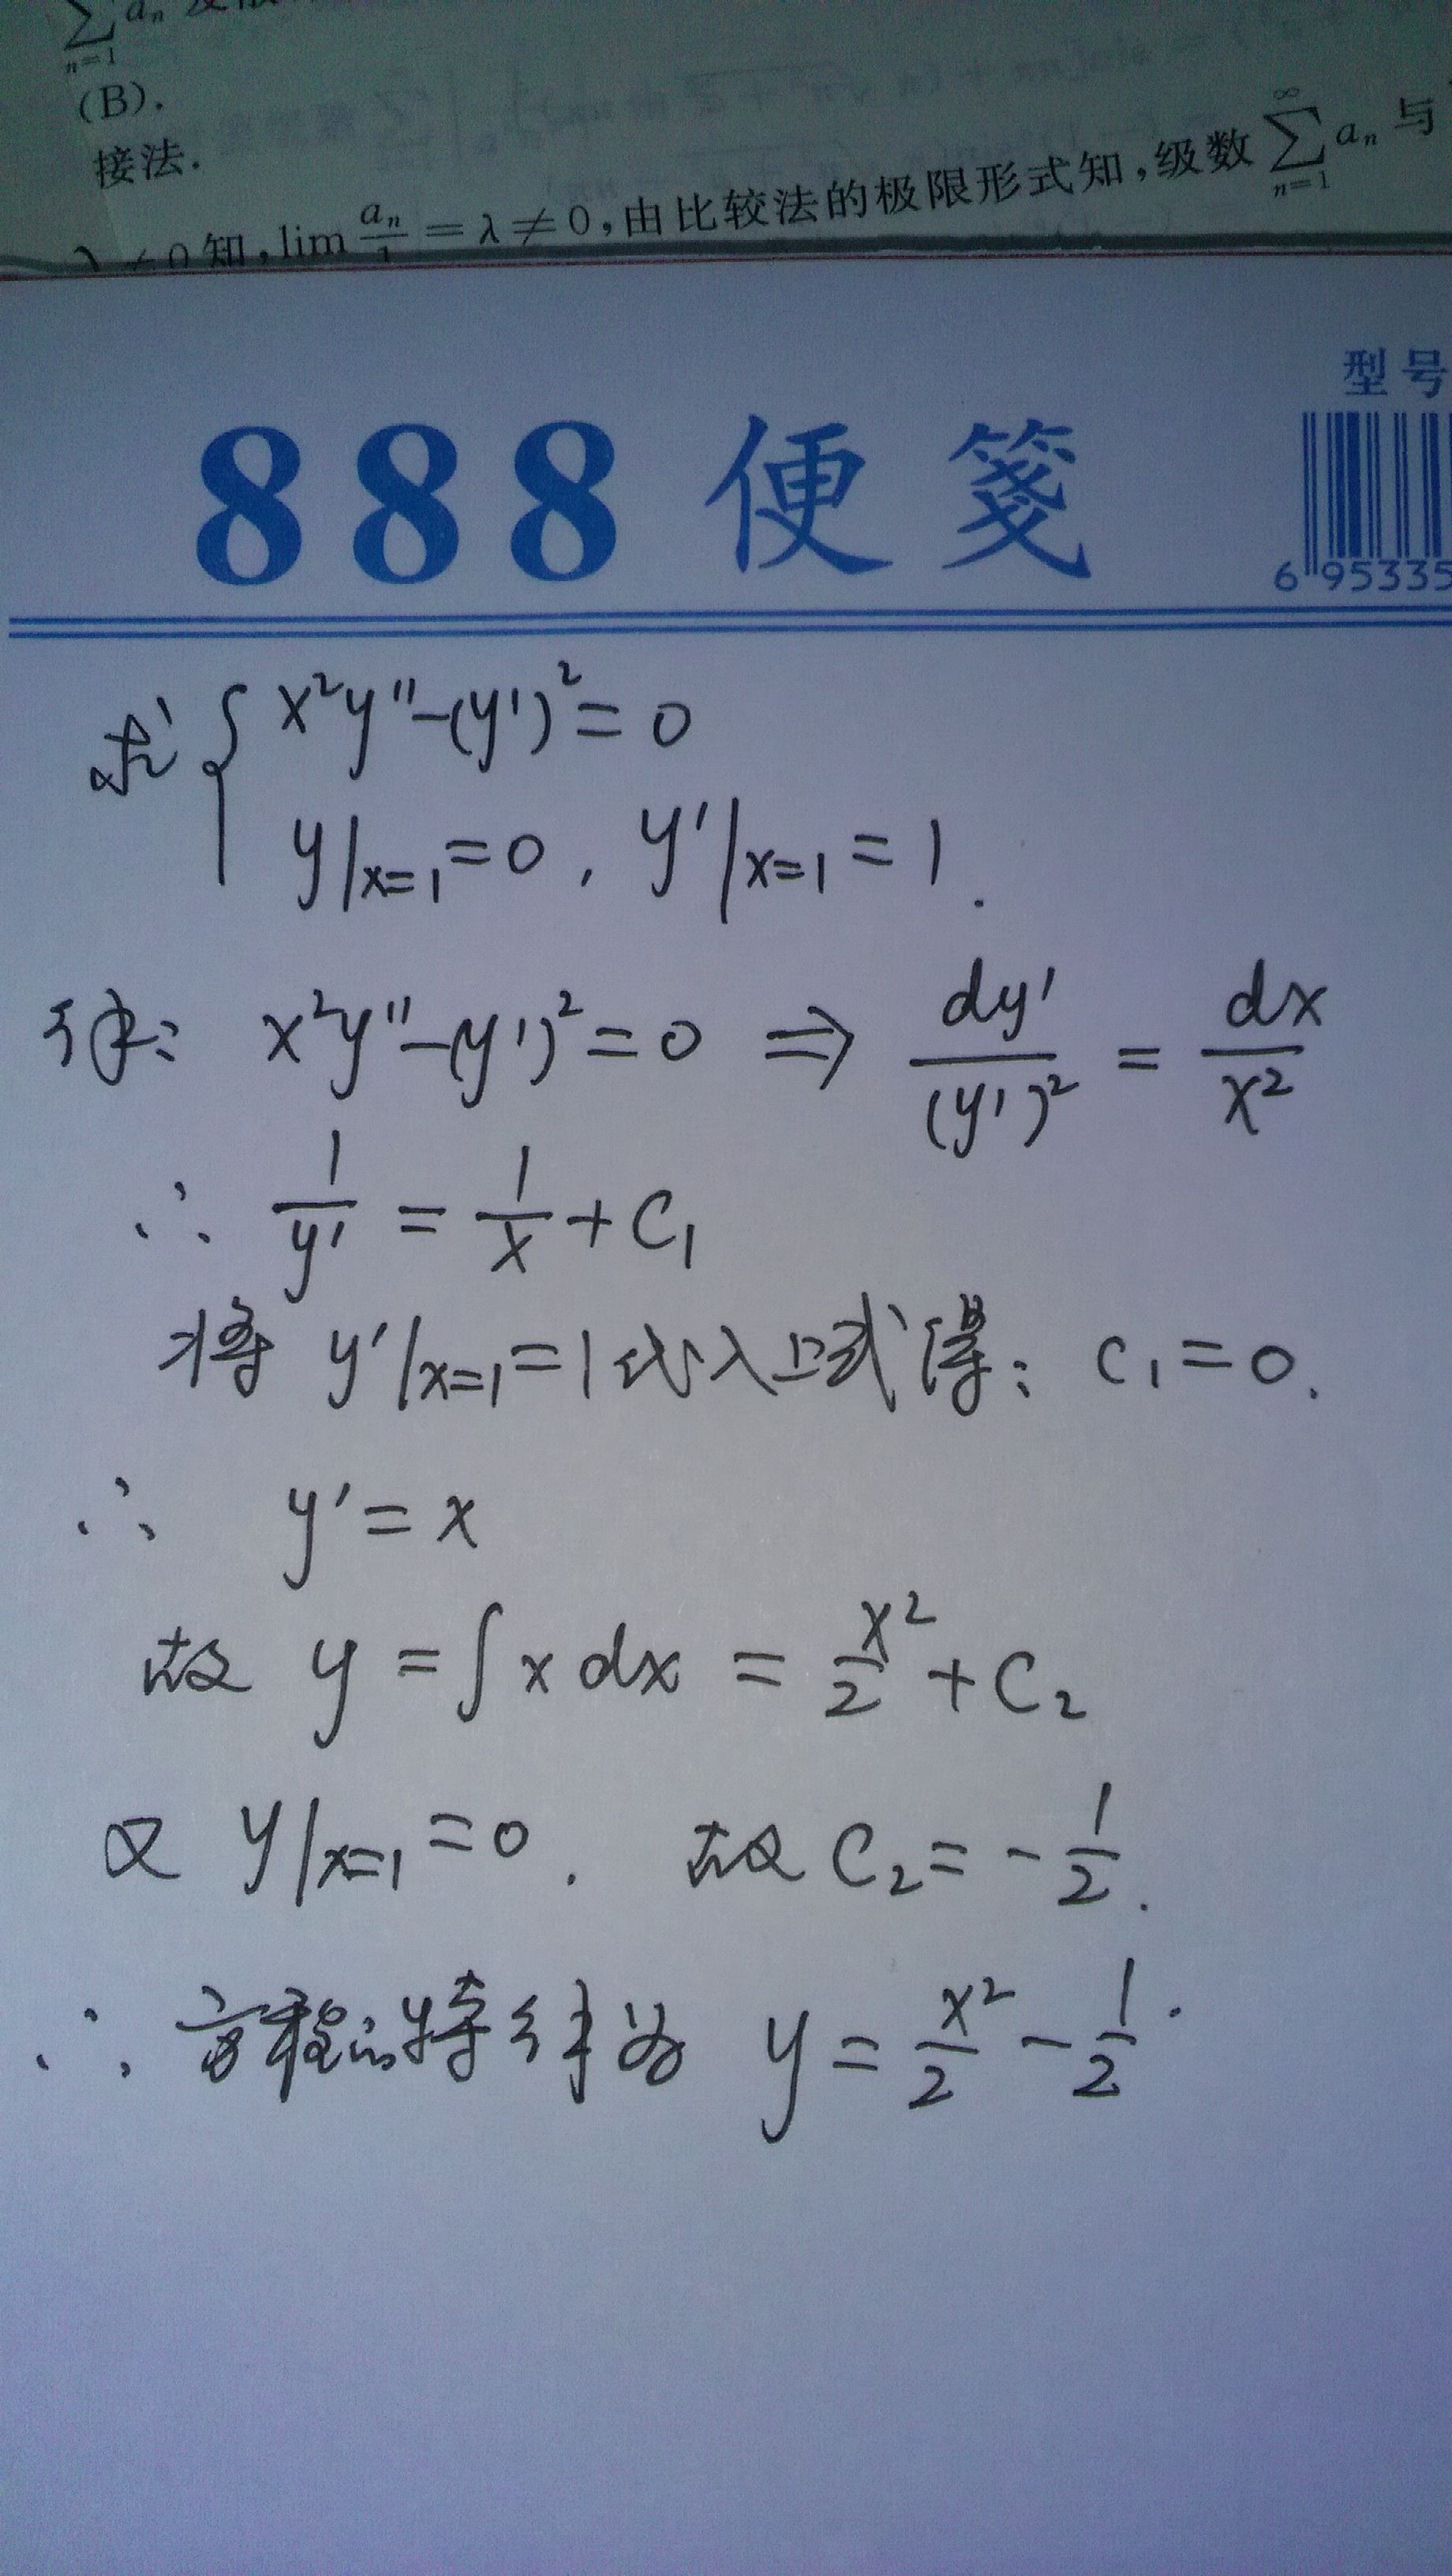 ∑ aₙ
n=1
(B).
接法.
λ≠0知,lim aₙ/1 = λ≠0,由比较法的极限形式知,级数 ∑_{n=1}^{∞} aₙ 与
型号
888 便笺
6 95335
求 { x²y''-(y')²=0
y|x=1=0, y'|x=1=1.
解: x²y''-(y')²=0 ⇒ dy'/(y')² = dx/x²
∴ 1/y' = 1/x + C₁
将 y'|x=1=1代入上式得: C₁=0.
∴ y'=x
故 y=∫xdx = x²/2 + C₂
又 y|x=1=0. 故 C₂=-1/2.
∴ 方程的特解为 y=x²/2-1/2.